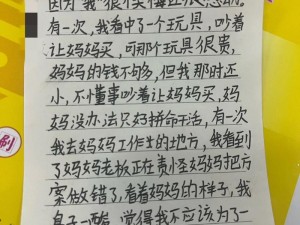 因为“我”很笑得还很感动。
有一次，我看中了一个玩具，吵着
让妈妈买，可那个玩具很贵，
妈妈的钱不够，但我那时还
小，不懂事吵着让妈妈买，妈
妈没办法只好拼命干活，有一次
我去妈妈工作的地方，我看到
了妈妈老板正在责怪妈妈把方
案做错了，看着妈妈的样子，我
鼻子一酸，觉得我不应该为了一
刷